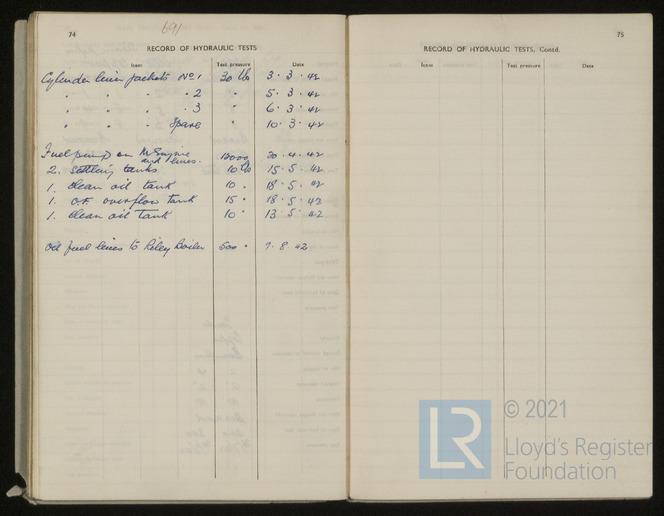 74
691
RECORD OF HYDRAULIC TESTS
Item Test pressure Date
Cylinder liner jackets No 1 30 lbs 3.3.42
" " " " 2 " 5.3.42
" " " " 3 " 6.3.42
" " " Spare " 10.3.42
Fuel pump on M Engine and lines. 12000 20.4.42
2. settling tanks 10 lbs 15.5.42
1. clean oil tank 10 " 18.5.42
1. O.F. overflow tank 15 " 18.5.42
1. clean oil tank 10 " 13.5.42
Oil fuel lines to Riley Boiler 500 " 7.8.42
75
RECORD OF HYDRAULIC TESTS, Contd.
Item Test pressure Date
LR
© 2021
Lloyd's Register
Foundation